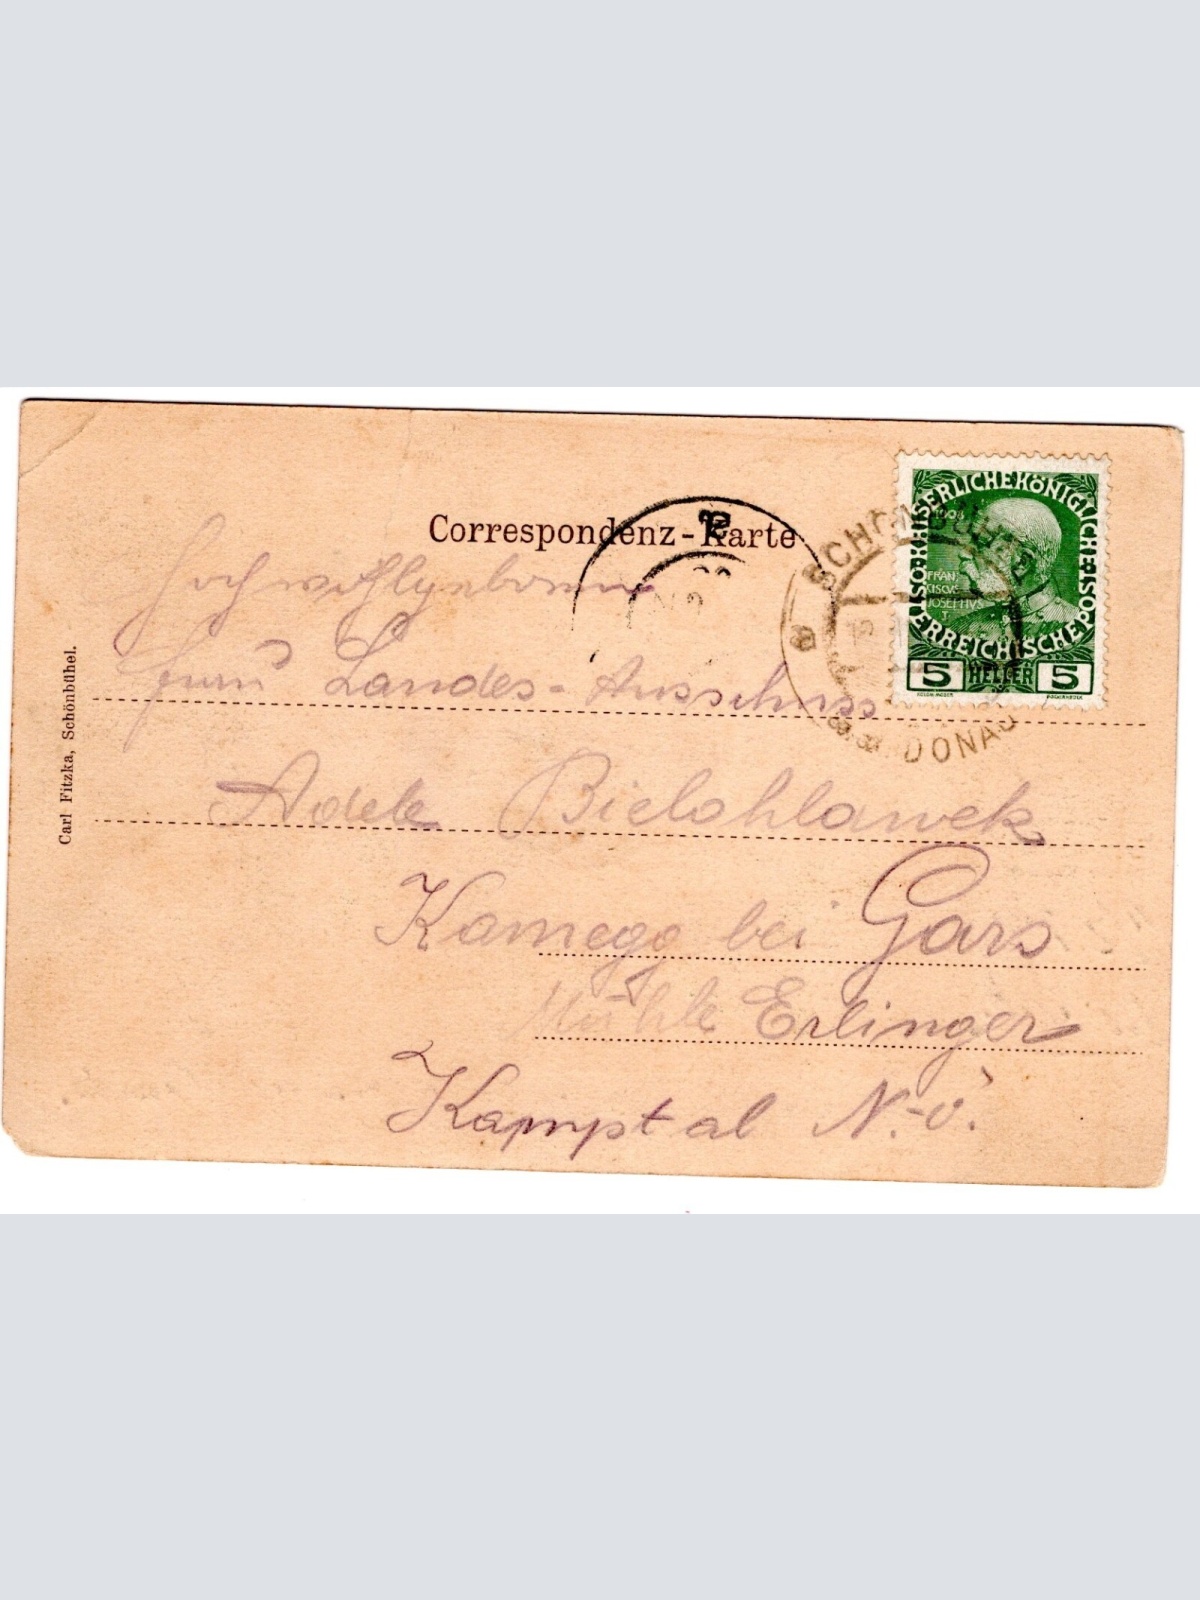 Correspondenz-Karte
Hochwohlgeboren
Frau Landes-Ausschuss
Adele Bielohlawek
Kamegg bei Gars
Mühle Erlinger
Kamptal N.-Ö.
Carl Fitzka, Schönbühel.
KAISERLICHE KÖNIGLICHE ÖSTERREICHISCHE POST
1908
FRAN
CISCVS
JOSEPHVS
I
5 HELLER 5
SCHÖNBÜHEL
DONAU